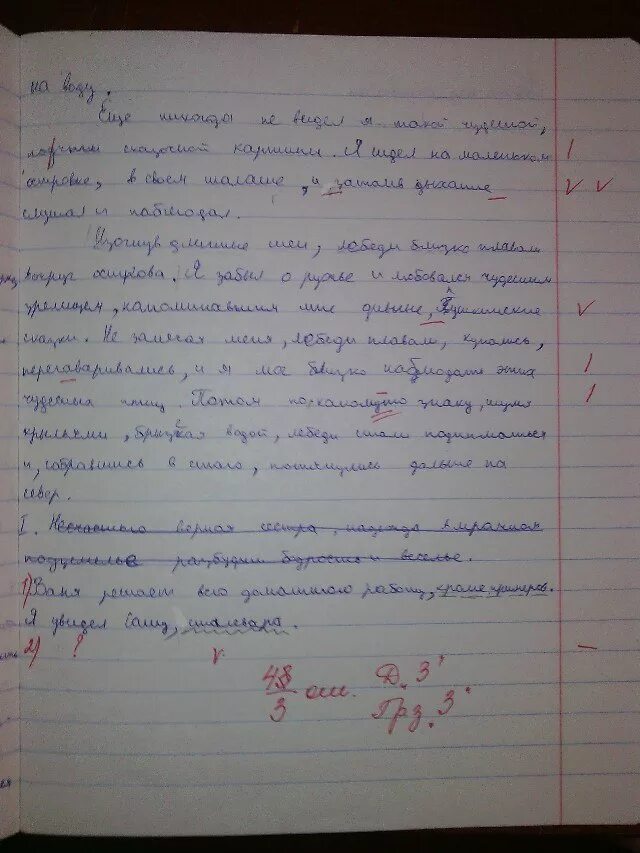 на воду.
Еще никогда не видел я такой чудесной,
сказочной картины. Я сидел на маленьком
островке, в своем шалаше, и затаив дыхание
слушал и наблюдал.
Изогнув длинные шеи, лебеди близко плавали
вокруг острова. Я забыл о ружье и любовался чудесным
зрелищем, напоминавшим мне дивные, Пушкинские
сказки. Не замечая меня, лебеди плавали, купались,
переговаривались, и я мог близко наблюдать этих
чудесных птиц. Потом по знаку, шумя
крыльями, брызгая водой, лебеди стали подниматься
и, собравшись в стаю, потянулись дальше на
север.
I. Несчастью верная сестра, надежда в мрачном
подземелье разбудит бодрость и веселье.
1) Ваня решает всю домашнюю работу, кроме примеров.
Я увидел Сашу, сталевара.
2) ? V –
48/3 ош. Д. 3
Грз. 3